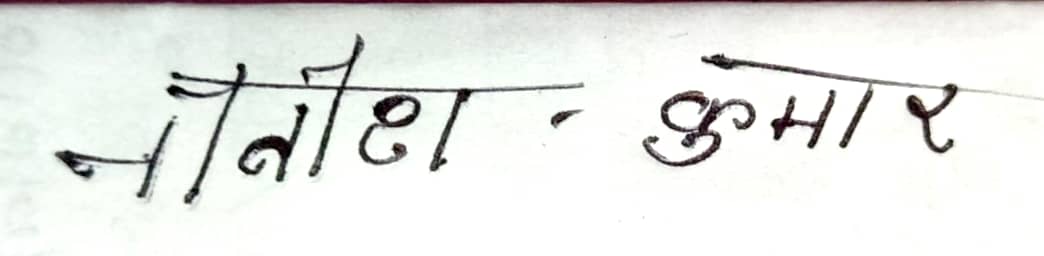 नीतीश - कुमार